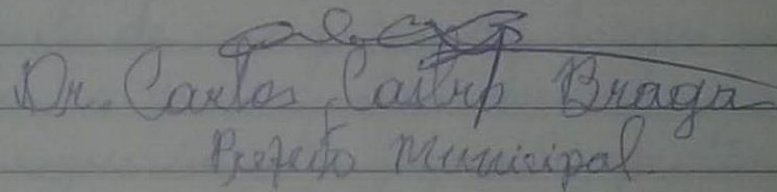 Dr. Carlos Castro Braga
Prefeito Municipal